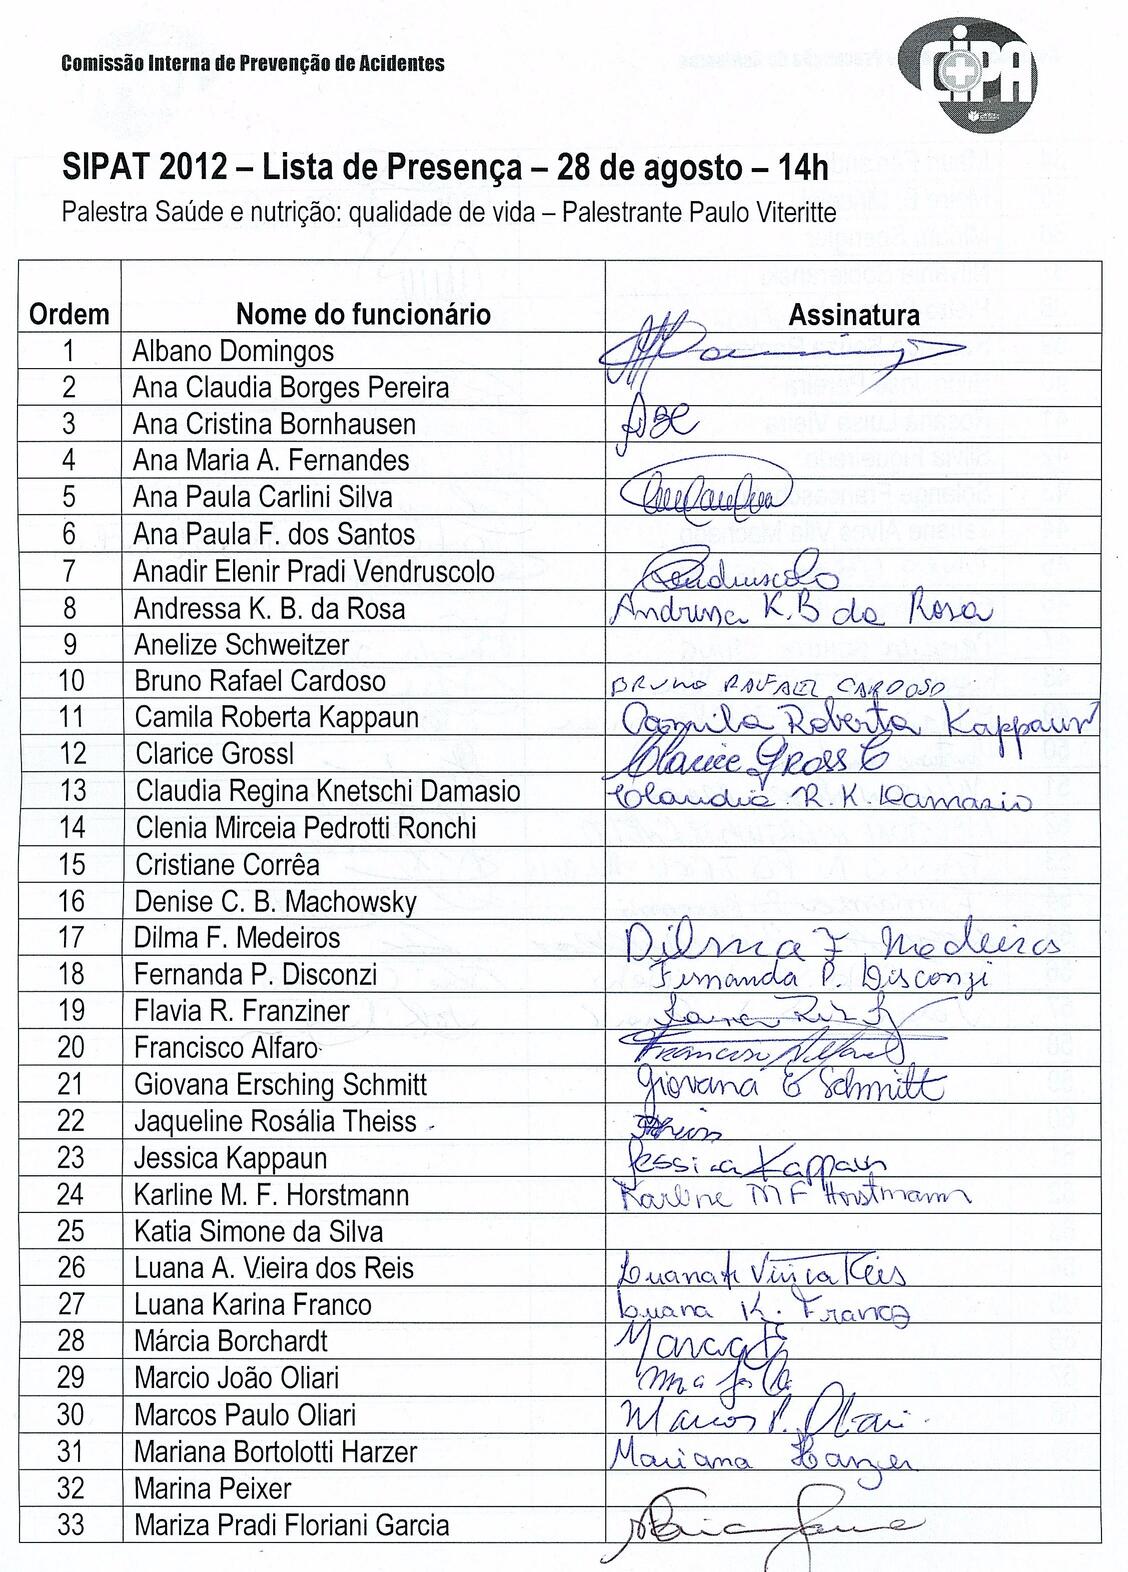 Comissão Interna de Prevenção de Acidentes
CIPA
SIPAT 2012 – Lista de Presença – 28 de agosto – 14h
Palestra Saúde e nutrição: qualidade de vida – Palestrante Paulo Viteritte
Ordem Nome do funcionário Assinatura
1 Albano Domingos
2 Ana Claudia Borges Pereira
3 Ana Cristina Bornhausen ABC
4 Ana Maria A. Fernandes
5 Ana Paula Carlini Silva
6 Ana Paula F. dos Santos
7 Anadir Elenir Pradi Vendruscolo Vendruscolo
8 Andressa K. B. da Rosa Andressa K.B da Rosa
9 Anelize Schweitzer
10 Bruno Rafael Cardoso BRUNO RAFAEL CARDOSO
11 Camila Roberta Kappaun Camila Roberta Kappaun
12 Clarice Grossl Clarice Grossl
13 Claudia Regina Knetschi Damasio Claudia R. K. Damasio
14 Clenia Mirceia Pedrotti Ronchi
15 Cristiane Corrêa
16 Denise C. B. Machowsky
17 Dilma F. Medeiros Dilma F Medeiros
18 Fernanda P. Disconzi Fernanda P. Disconzi
19 Flavia R. Franziner
20 Francisco Alfaro Francisco Alfaro
21 Giovana Ersching Schmitt Giovana E Schmitt
22 Jaqueline Rosália Theiss Theiss
23 Jessica Kappaun Jessica Kappaun
24 Karline M. F. Horstmann Karline M F Horstmann
25 Katia Simone da Silva
26 Luana A. Vieira dos Reis Luana A Vieira Reis
27 Luana Karina Franco Luana K. Franco
28 Márcia Borchardt
29 Marcio João Oliari
30 Marcos Paulo Oliari Marcos P. Oliari
31 Mariana Bortolotti Harzer Mariana Harzer
32 Marina Peixer
33 Mariza Pradi Floriani Garcia